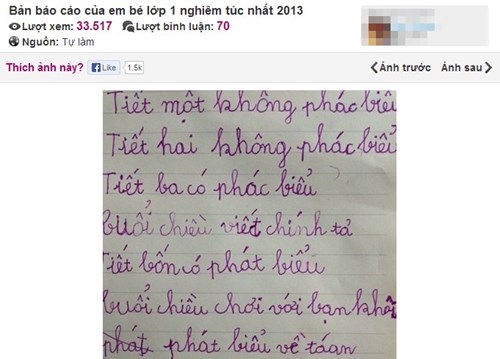 Bản báo cáo của em bé lớp 1 nghiêm túc nhất 2013
Lượt xem: 33.517 Lượt bình luận: 70
Nguồn: Tự làm
Thích ảnh này? Like 1.5k Ảnh trước Ảnh sau
Tiết một không phác biểu
Tiết hai không phác biểu
Tiết ba có phác biểu
buổi chiều viết chính tả
Tiết bốn có phát biểu
buổi chiều chơi với bạn khôi
phát phát biểu về táan